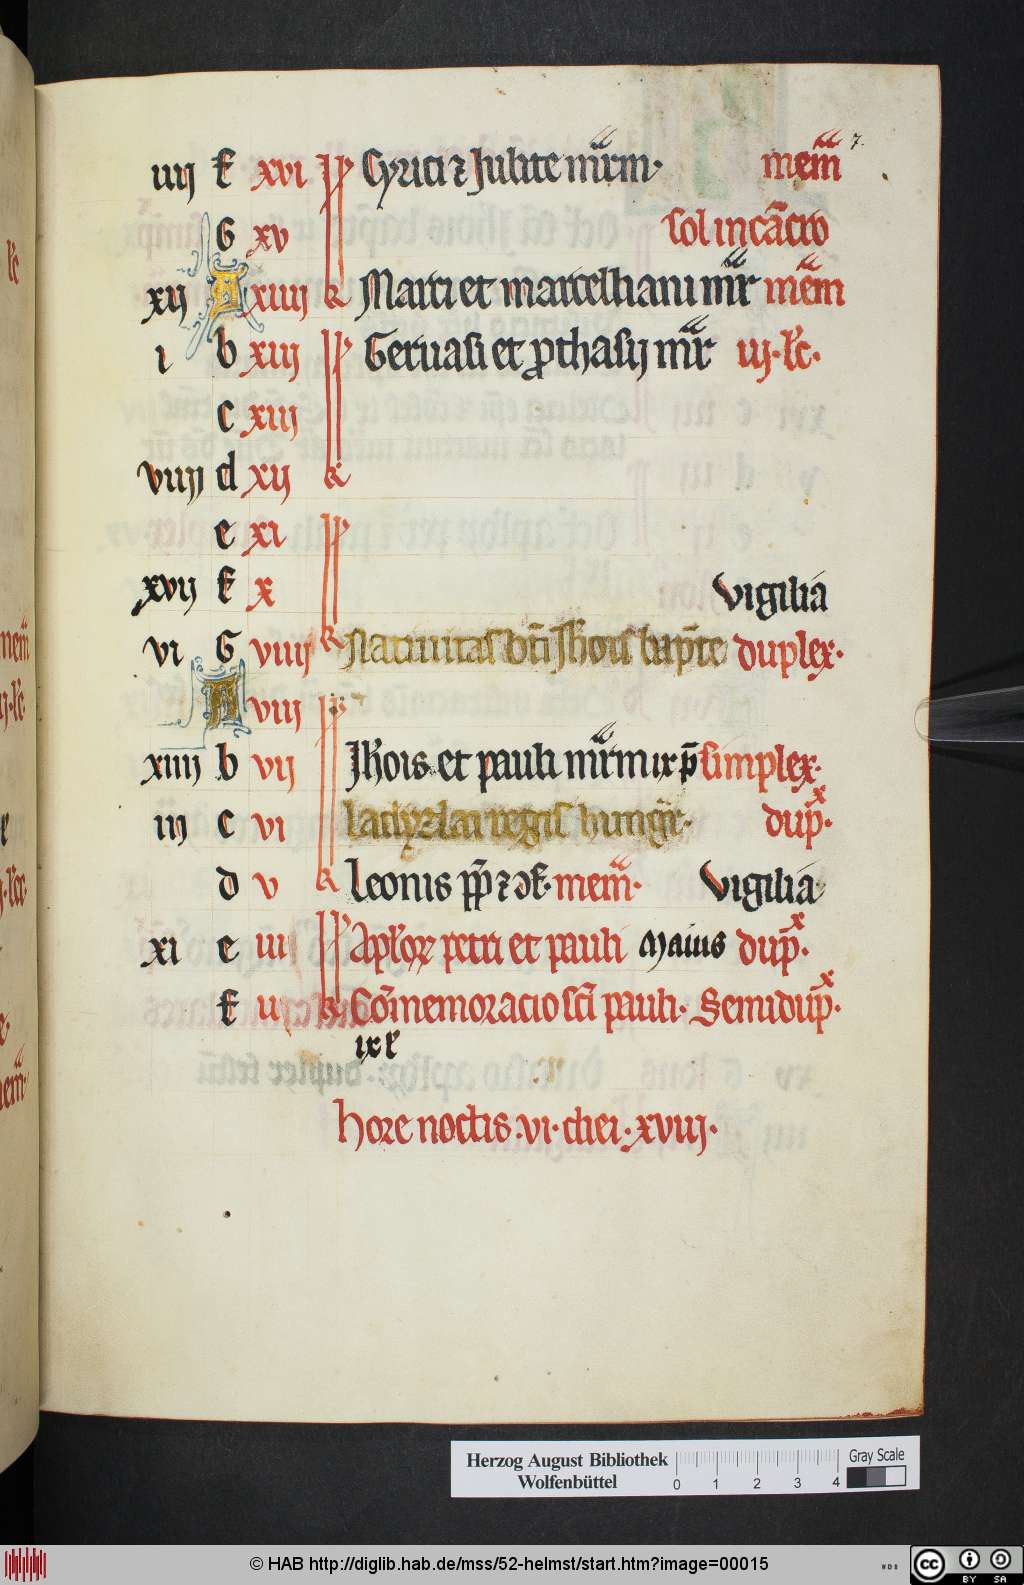 7.
iiij f xvi kl Cyrici ⁊ Julite mr̄m· mem̄
G xv sol in cācro
xij A xiiij kl Marci et marcelliani mr̄ mem̄
i b xiij kl Geruasi et ꝓthasij mr̄ iij·lc̄·
c xiij
viiij d xij kl
e xi kl
xvij f x vigilia
vi G viiij kl Natiuitas bt̄i Joh̄is bapt̄e duplex·
A viij kl
xiiij b vij Joh̄is et pauli mr̄m ix p̄ simplex·
iij c vi ladyzlai regis hungr̄e· dupx̄·
d v kl Leonis pp̄ ⁊ ɔf· mem̄· vigilia
xi e iiij kl Apl̄oꝝ petri et pauli Maius dupx̄·
f iij kl Cōmemoracio sc̄i pauli· Semidupx̄·
ix l
hore noctis·vi·diei·xviij·
Herzog August Bibliothek
Wolfenbüttel
0 1 2 3 4
Gray Scale
© HAB http://diglib.hab.de/mss/52-helmst/start.htm?image=00015
WDB
cc BY SA